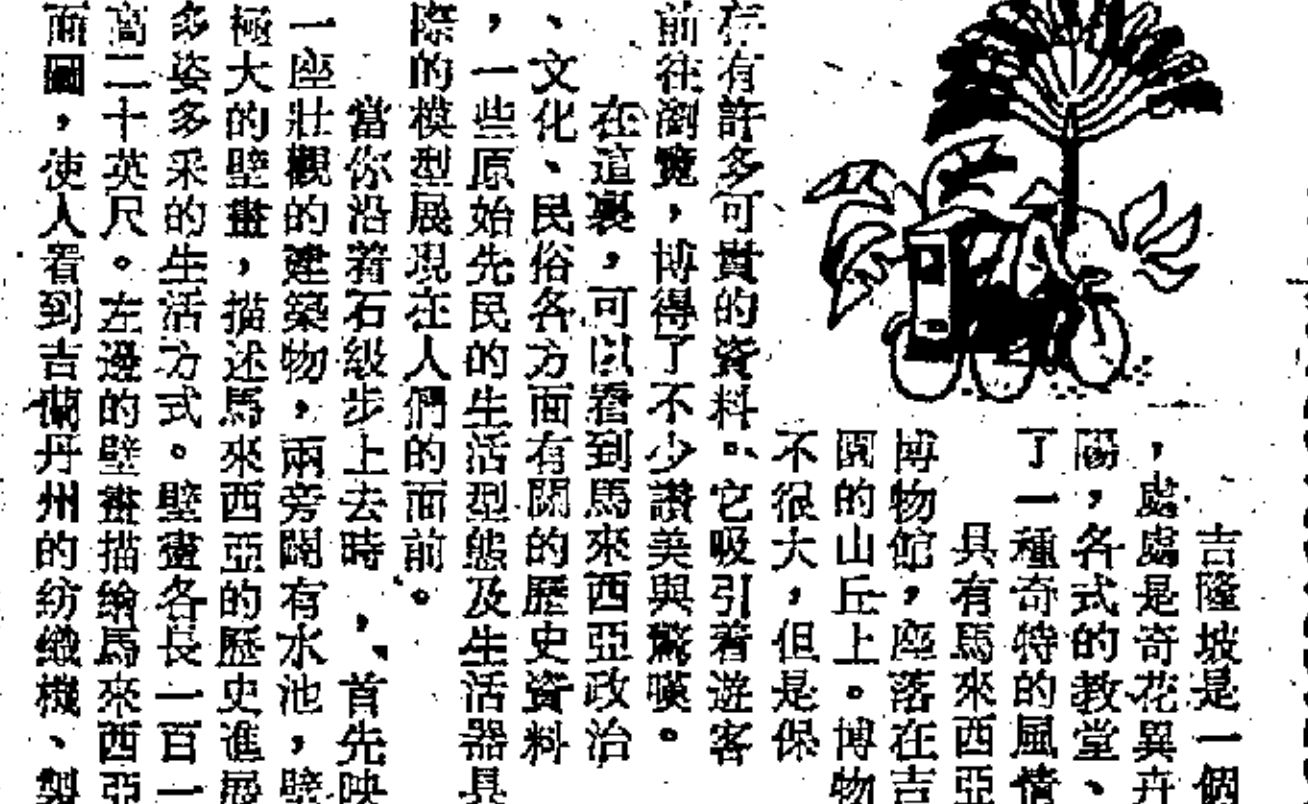 吉隆坡是一個
，處處是奇花異卉
陽，各式的教堂、
了一種奇特的風情
具有馬來西亞
博物館，座落在吉
園的山丘上。博物
不很大，但是保
存有許多可貴的資料。它吸引着遊客
前往瀏覽，博得了不少讚美與驚嘆。
在這裏，可以看到馬來西亞政治
、文化、民俗各方面有關的歷史資料
，一些原始先民的生活型態及生活器具
際的模型展現在人們的面前。
當你沿着石級步上去時，首先映
一座壯觀的建築物，兩旁闢有水池，壁
極大的壁畫，描述馬來西亞的歷史進展
多姿多采的生活方式。壁畫各長一百一
高二十英尺。左邊的壁畫描繪馬來西亞
面圖，使人看到吉蘭丹州的紡織機、製